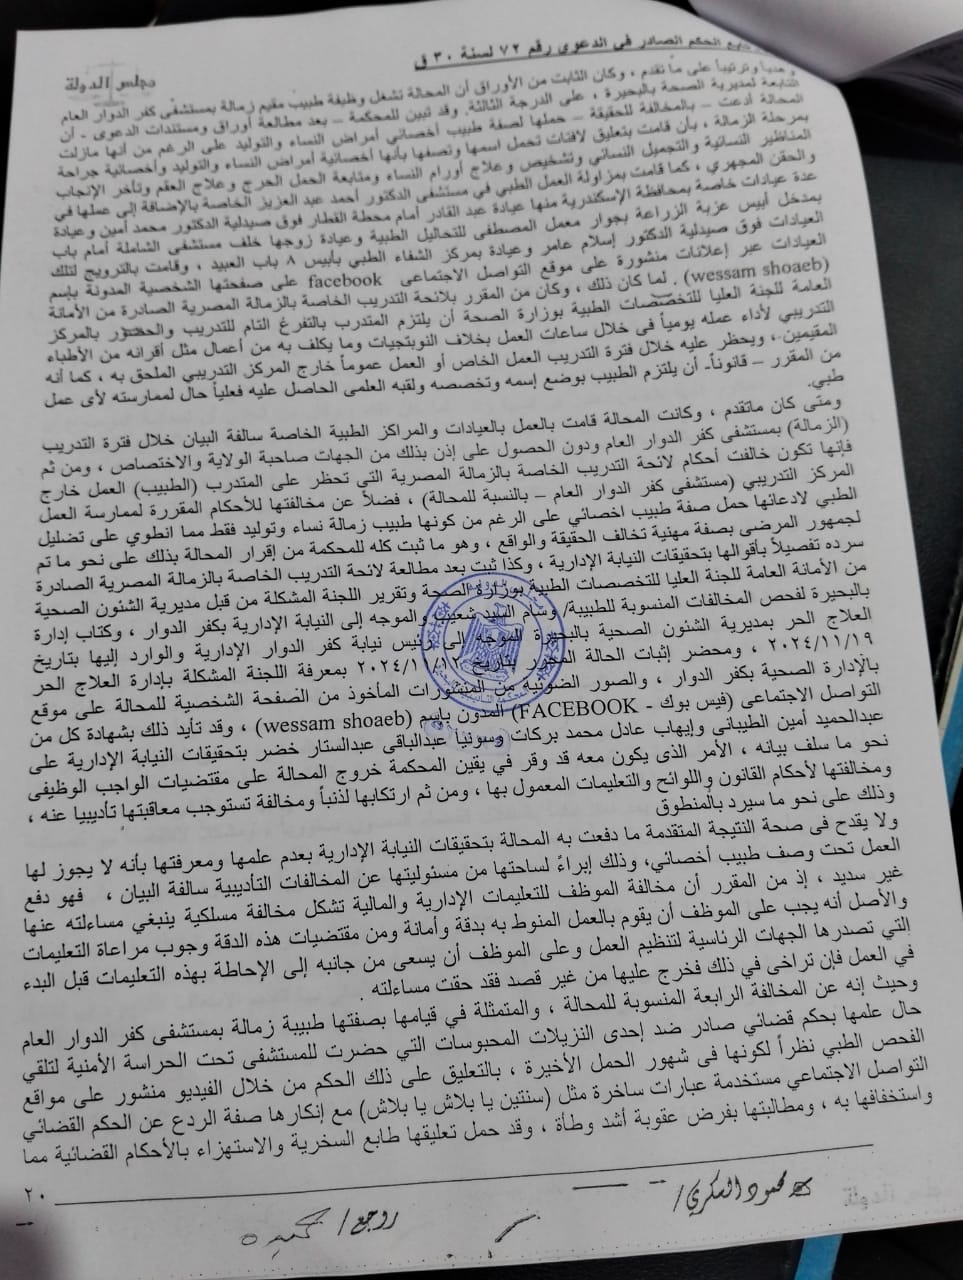 تابع الحكم الصادر في الدعوى رقم ٧٢ لسنة ٣٠ ق
مجلس الدولة
وهدياً وترتيباً على ما تقدم ، وكان الثابت من الأوراق أن المحالة تشغل وظيفة طبيب مقيم زمالة بمستشفى كفر الدوار العام
التابعة لمديرية الصحة بالبحيرة ، على الدرجة الثالثة. وقد تبين للمحكمة – بعد مطالعة أوراق ومستندات الدعوى - أن
المحالة ادعت – بالمخالفة للحقيقة – حملها لصفة طبيب أخصائي أمراض النساء والتوليد على الرغم من أنها مازلت
بمرحلة الزمالة ، بأن قامت بتعليق لافتات تحمل اسمها وتصفها بأنها أخصائية أمراض النساء والتوليد وأخصائية جراحة
المناظير النسائية والتجميل النسائي وتشخيص وعلاج أورام النساء ومتابعة الحمل الحرج وعلاج العقم وتأخر الإنجاب
والحقن المجهري ، كما قامت بمزاولة العمل الطبي في مستشفى الدكتور أحمد عبد العزيز الخاصة بالإضافة إلى عملها في
عدة عيادات خاصة بمحافظة الإسكندرية منها عيادة عبد القادر أمام محطة القطار فوق صيدلية الدكتور محمد أمين وعيادة
بمدخل أبيس عزبة الزراعة بجوار معمل المصطفى للتحاليل الطبية وعيادة زوجها خلف مستشفى الشاملة أمام باب
العيادات فوق صيدلية الدكتور إسلام عامر وعيادة بمركز الشفاء الطبي بأبيس ٨ باب العبيد ، وقامت بالترويج لتلك
العيادات عبر إعلانات منشورة على موقع التواصل الاجتماعى facebook على صفحتها الشخصية المدونة بإسم
(wessam shoaeb) . لما كان ذلك ، وكان من المقرر بلائحة التدريب الخاصة بالزمالة المصرية الصادرة من الأمانة
العامة للجنة العليا للتخصصات الطبية بوزارة الصحة أن يلتزم المتدرب بالتفرغ التام للتدريب والحضور بالمركز
التدريبي لأداء عمله يومياً في خلال ساعات العمل بخلاف النوبتجيات وما يكلف به من أعمال مثل أقرانه من الأطباء
المقيمين ، ويحظر عليه خلال فترة التدريب العمل الخاص أو العمل عموماً خارج المركز التدريبي الملحق به ، كما أنه
من المقرر – قانوناً- أن يلتزم الطبيب بوضع إسمه وتخصصه ولقبه العلمى الحاصل عليه فعلياً حال لممارسته لأى عمل
طبي.
ومتى كان ماتقدم ، وكانت المحالة قامت بالعمل بالعيادات والمراكز الطبية الخاصة سالفة البيان خلال فترة التدريب
(الزمالة) بمستشفى كفر الدوار العام ودون الحصول على إذن بذلك من الجهات صاحبة الولاية والاختصاص ، ومن ثم
فإنها تكون خالفت أحكام لائحة التدريب الخاصة بالزمالة المصرية التى تحظر على المتدرب (الطبيب) العمل خارج
المركز التدريبي (مستشفى كفر الدوار العام – بالنسبة للمحالة) ، فضلاً عن مخالفتها للأحكام المقررة لممارسة العمل
الطبي لادعائها حمل صفة طبيب اخصائي على الرغم من كونها طبيب زمالة نساء وتوليد فقط مما انطوي على تضليل
لجمهور المرضى بصفة مهنية تخالف الحقيقة والواقع ، وهو ما ثبت كله للمحكمة من إقرار المحالة بذلك على نحو ما تم
سرده تفصيلاً بأقوالها بتحقيقات النيابة الإدارية ، وكذا ثبت بعد مطالعة لائحة التدريب الخاصة بالزمالة المصرية الصادرة
من الأمانة العامة للجنة العليا للتخصصات الطبية بوزارة الصحة وتقرير اللجنة المشكلة من قبل مديرية الشئون الصحية
بالبحيرة لفحص المخالفات المنسوبة للطبيبة/ وسام السيد شعيب والموجه إلى النيابة الإدارية بكفر الدوار ، وكتاب إدارة
العلاج الحر بمديرية الشئون الصحية بالبحيرة الموجه إلى رئيس نيابة كفر الدوار الإدارية والوارد إليها بتاريخ
٢٠٢٤/١١/١٩ ، ومحضر إثبات الحالة المحرر بتاريخ ٢٠٢٤/١١/١٢ بمعرفة اللجنة المشكلة بإدارة العلاج الحر
بالإدارة الصحية بكفر الدوار ، والصور الضوئية من المنشورات المأخوذ من الصفحة الشخصية للمحالة على موقع
التواصل الاجتماعى (فيس بوك - FACEBOOK) المدون بإسم (wessam shoaeb) ، وقد تأيد ذلك بشهادة كل من
عبدالحميد أمين الطيبانى وإيهاب عادل محمد بركات وسونيا عبدالباقى عبدالستار خضر بتحقيقات النيابة الإدارية على
نحو ما سلف بيانه ، الأمر الذى يكون معه قد وقر في يقين المحكمة خروج المحالة على مقتضيات الواجب الوظيفى
ومخالفتها لأحكام القانون واللوائح والتعليمات المعمول بها ، ومن ثم ارتكابها لذنباً ومخالفة تستوجب معاقبتها تأديبيا عنه ،
وذلك على نحو ما سيرد بالمنطوق
ولا يقدح فى صحة النتيجة المتقدمة ما دفعت به المحالة بتحقيقات النيابة الإدارية بعدم علمها ومعرفتها بأنه لا يجوز لها
العمل تحت وصف طبيب أخصائي، وذلك إبراءً لساحتها من مسئوليتها عن المخالفات التأديبية سالفة البيان ، فهو دفع
غير سديد ، إذ من المقرر أن مخالفة الموظف للتعليمات الإدارية والمالية تشكل مخالفة مسلكية ينبغي مساءلته عنها
والأصل أنه يجب على الموظف أن يقوم بالعمل المنوط به بدقة وأمانة ومن مقتضيات هذه الدقة وجوب مراعاة التعليمات
التي تصدرها الجهات الرئاسية لتنظيم العمل وعلى الموظف أن يسعى من جانبه إلى الإحاطة بهذه التعليمات قبل البدء
في العمل فإن تراخى في ذلك فخرج عليها من غير قصد فقد حقت مساءلته .
وحيث إنه عن المخالفة الرابعة المنسوبة للمحالة ، والمتمثلة في قيامها بصفتها طبيبة زمالة بمستشفى كفر الدوار العام
حال علمها بحكم قضائي صادر ضد إحدى النزيلات المحبوسات التي حضرت للمستشفى تحت الحراسة الأمنية لتلقي
الفحص الطبي نظراً لكونها فى شهور الحمل الأخيرة ، بالتعليق على ذلك الحكم من خلال الفيديو منشور على مواقع
التواصل الاجتماعي مستخدمة عبارات ساخرة مثل (سنتين يا بلاش يا بلاش) مع إنكارها صفة الردع عن الحكم القضائي
واستخفافها به ، ومطالبتها بفرض عقوبة أشد وطأة ، وقد حمل تعليقها طابع السخرية والاستهزاء بالأحكام القضائية مما
٢٠
محمود السكري/
روجع/